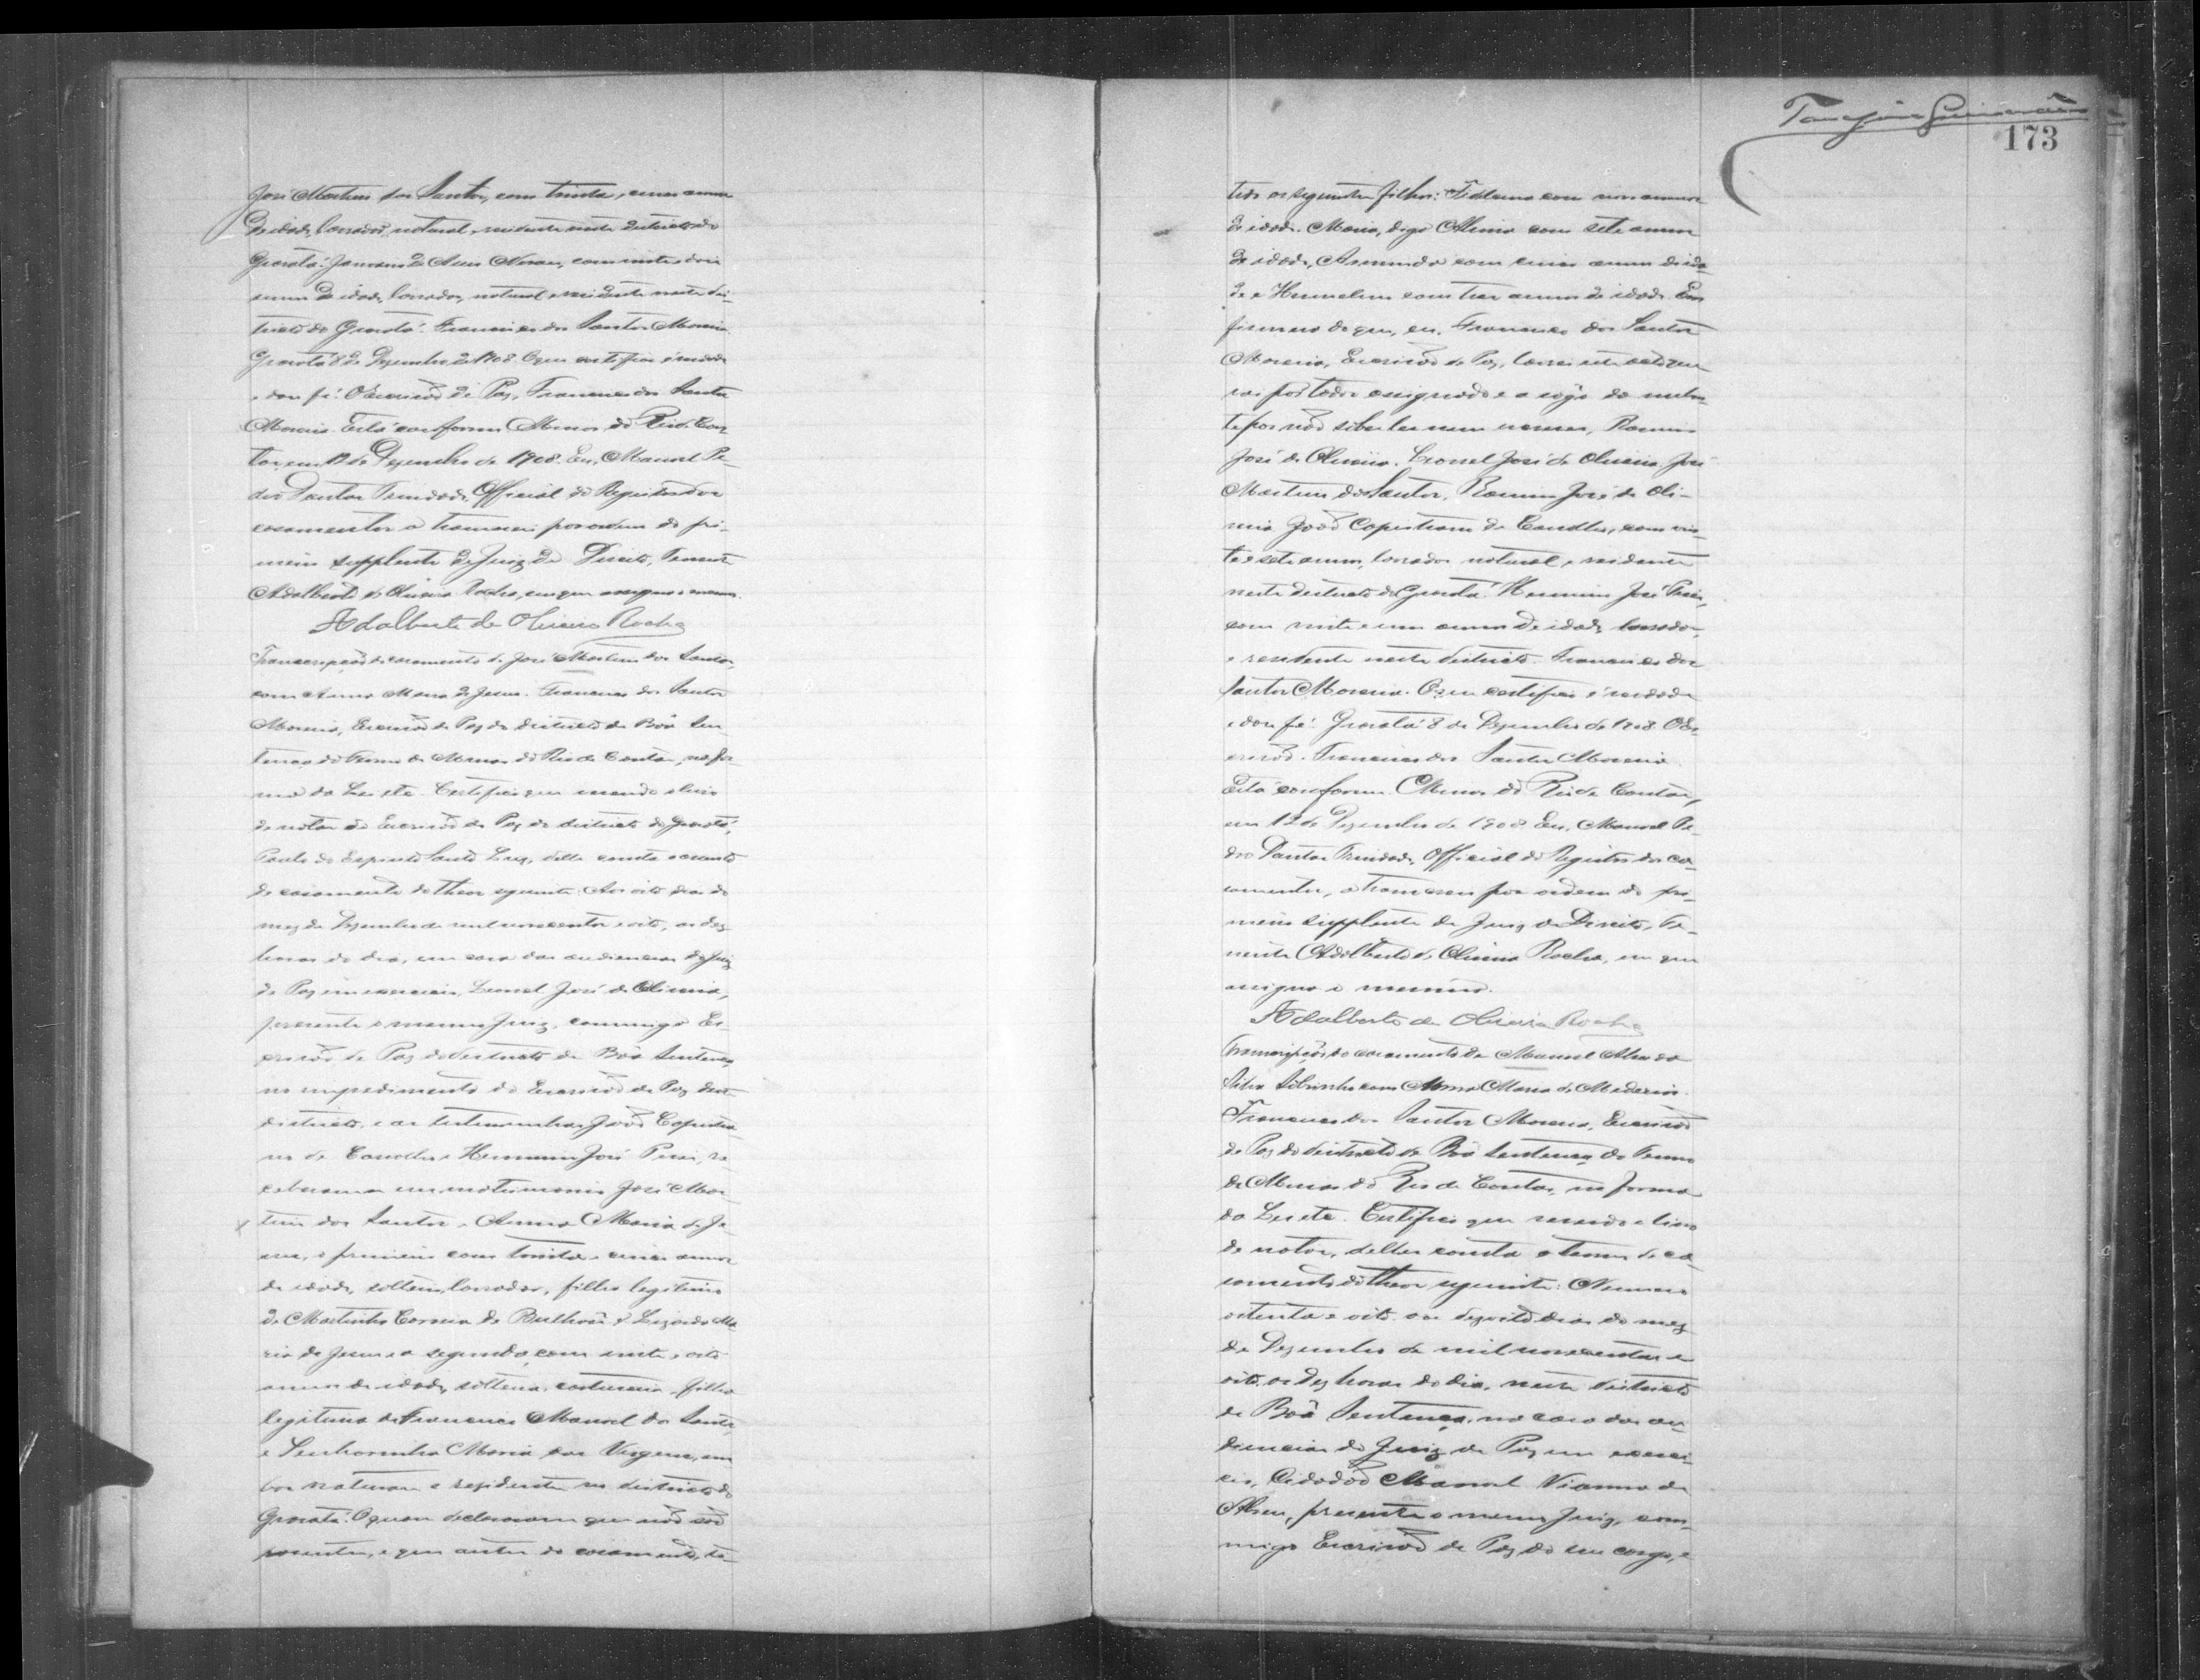 José Martins dos Santos, com trinta e cinco annos
de idade, lavrador, natural e residente neste districto do
Gravatá. Januario de Novaes, com vinte e dois
annos de idade, lavrador, natural e residente neste dis-
tricto do Gravatá. Francisco dos Santos Moreira.
Gravatá 8 de Dezembro de 1908. O que certifico é verdade
e dou fé. O Escrivão de Paz, Francisco dos Santos
Moreira. Está conforme. Minas do Rio de Con-
tas, em 12 de Dezembro de 1908. Eu, Manoel Pe-
dro Dantas Trindade, Official do Registro dos
casamentos a transcrevi por ordem do pri-
meiro supplente do Juiz de Direito, Tenente
Adalberto de Oliveira Rocha, em que assigna o mesmo.
Adalberto de Oliveira Rocha
Transcripção do casamento de José Martins dos Santos,
com Anna Maria de Jesus. Francisco dos Santos
Moreira, Escrivão de Paz do districto de Bôa Sen-
tença do Termo de Minas do Rio de Contas, na for-
ma da Lei etc. Certifico que revendo o livro
de notas do Escrivão de Paz do districto do Gravatá,
Paulo do Espirito Santo Luz, delle consta o assento
de casamento do theor seguinte: Aos oito dias do
mez de Dezembro de mil novecentos e oito, as dez
horas do dia, em casa das audiencias do Juiz
de Paz em exercicio, Leonel José de Oliveira,
presente o mesmo Juiz, commigo Es-
crivão de Paz do districto de Bôa Sentença,
no impedimento do Escrivão de Paz deste
districto, e as testemunhas João Capistra-
no de Carvalho e Herminio José Pires, re-
ceberam em matrimonio José Mar-
tins dos Santos e Anna Maria de Je-
sus, o primeiro com trinta e cinco annos
de idade, solteiro, lavrador, filho legitimo
de Martinho Correia de Bulhões e Ma-
ria de Jesus e a segunda, com vinte e oito
annos de idade, solteira, costureira, filha
legitima de Francisco Manoel dos Santos
e Senhorinha Maria das Virgens, am-
bos naturaes e residentes no districto do
Gravatá. Os quaes declararam que não são
parentes, e que antes do casamento, ti-
173
tido os seguintes filhos: com nove annos
de idade. Maria, digo com sete annos
de idade, com cinco annos de ida-
de e com tres annos de idade. Em
firmeza do que, eu, Francisco dos Santos
Moreira, Escrivão de Paz, lavrei este acto que
vai por todos assignado e a rogo da nuben-
te por não saber ler nem escrever, Ramiro
José de Oliveira. Leonel José de Oliveira. José
Martins dos Santos. Ramiro José de Oli-
veira. João Capistrano de Carvalho, com vin-
te e sete annos, lavrador, natural e residente
neste districto do Gravatá. Herminio José Pires,
com vinte e um annos de idade, lavrador,
e residente neste districto. Francisco dos
Santos Moreira. O que certifico é verdade
e dou fé. Gravatá 8 de Dezembro de 1908. O Es-
crivão. Francisco dos Santos Moreira.
Está conforme. Minas do Rio de Contas,
em 12 de Dezembro de 1908. Eu, Manoel Pe-
dro Dantas Trindade, Official do Registro dos ca-
samentos, a transcrevi por ordem do pri-
meiro supplente do Juiz de Direito, Te-
nente Adalberto de Oliveira Rocha, em que
assigna o mesmo.
Adalberto de Oliveira Rocha
Transcripção do casamento de Manoel Alves da
Silva com Anna Maria de Medeiros.
Francisco dos Santos Moreira, Escrivão
de Paz do districto de Bôa Sentença do Termo
de Minas do Rio de Contas, na forma
da Lei etc. Certifico que revendo o livro
de notas, delles consta o termo de ca-
samento do theor seguinte: Numero
oitenta e oito. Aos dezoito dias do mez
de Dezembro de mil novecentos e
oito, as dez horas do dia, neste districto
de Bôa Sentença, na casa das au-
diencias do Juiz de Paz em exerci-
cio, Cidadão Manoel Vianna de
Abreu, presente o mesmo Juiz, com-
migo Escrivão de Paz do seu cargo, e